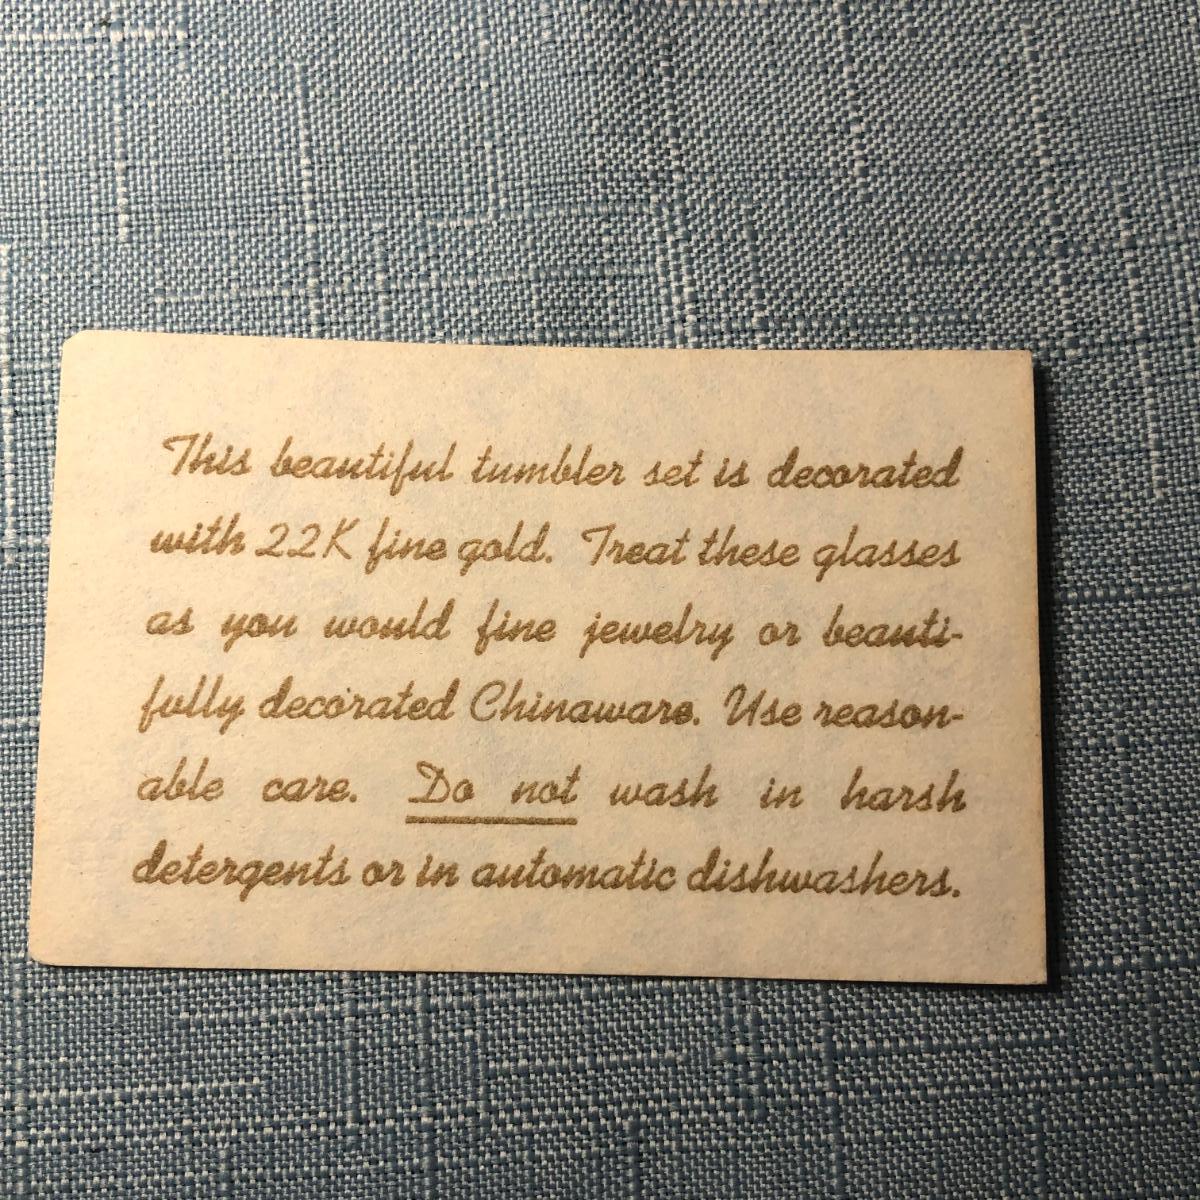 This beautiful tumbler set is decorated
with 22K fine gold. Treat these glasses
as you would fine jewelry or beauti-
fully decorated Chinaware. Use reason-
able care. Do not wash in harsh
detergents or in automatic dishwashers.